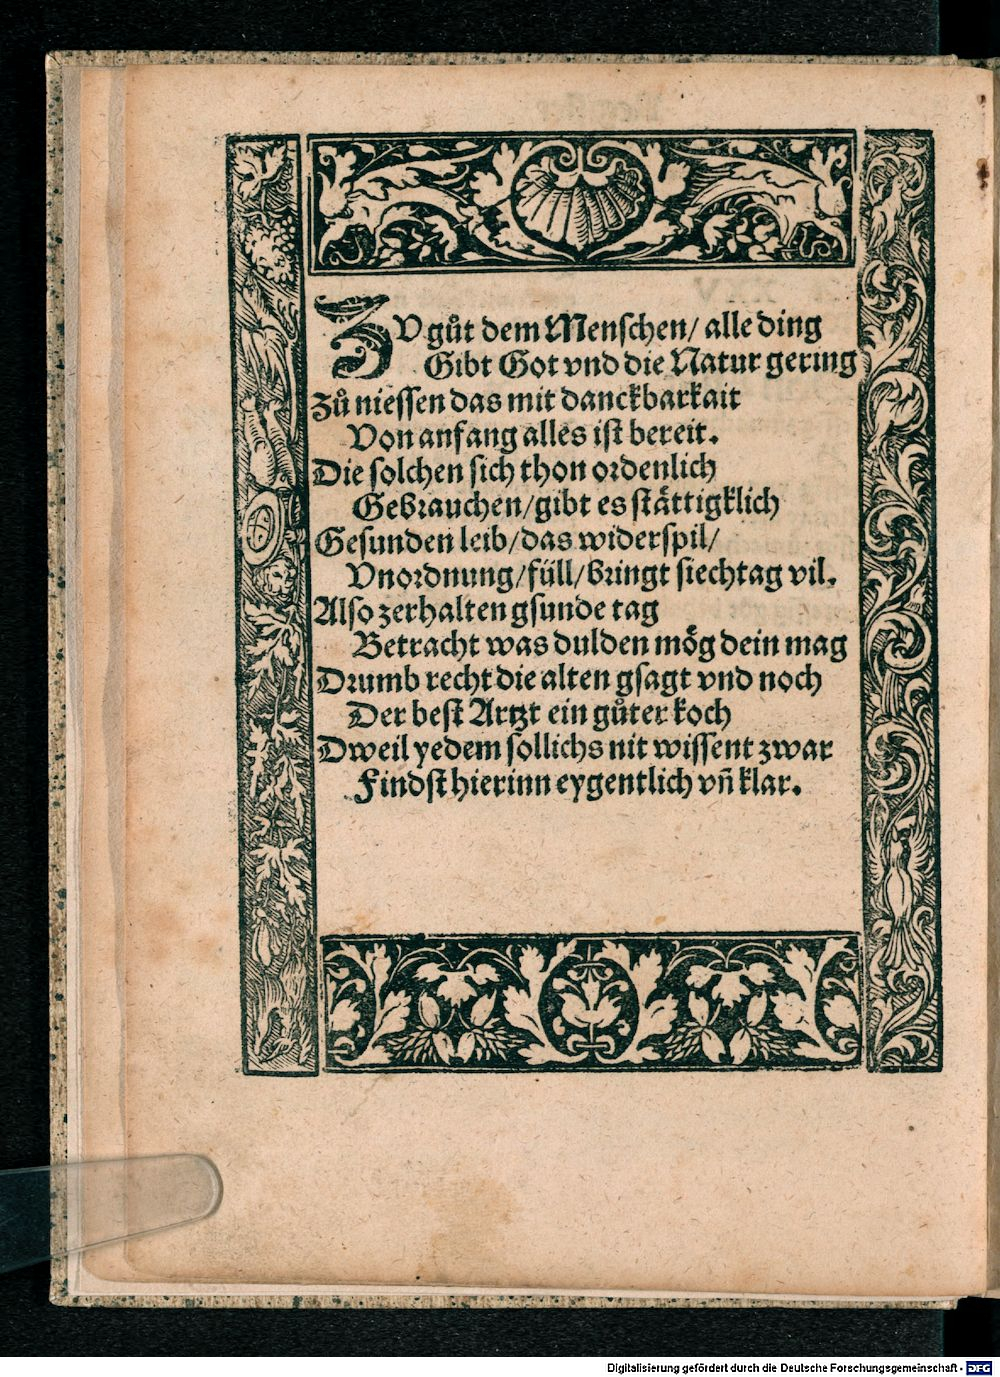 ZV gůt dem Menschen/ alle ding
Gibt Got vnd die Natur gering
Zů niessen das mit danckbarkait
Von anfang alles ist bereit.
Die solchen sich thon ordenlich
Gebrauchen/gibt es stättigklich
Gesunden leib/das widerspil/
Vnordnung/füll/bringt siechtag vil.
Also zerhalten gsunde tag
Betracht was dulden mög dein mag
Drumb recht die alten gsagt vnd noch
Der best Artzt ein gůter koch
Dweil yedem sollichs nit wissent zwar
Findst hierinn eygentlich vñ klar.
Digitalisierung gefördert durch die Deutsche Forschungsgemeinschaft - DFG